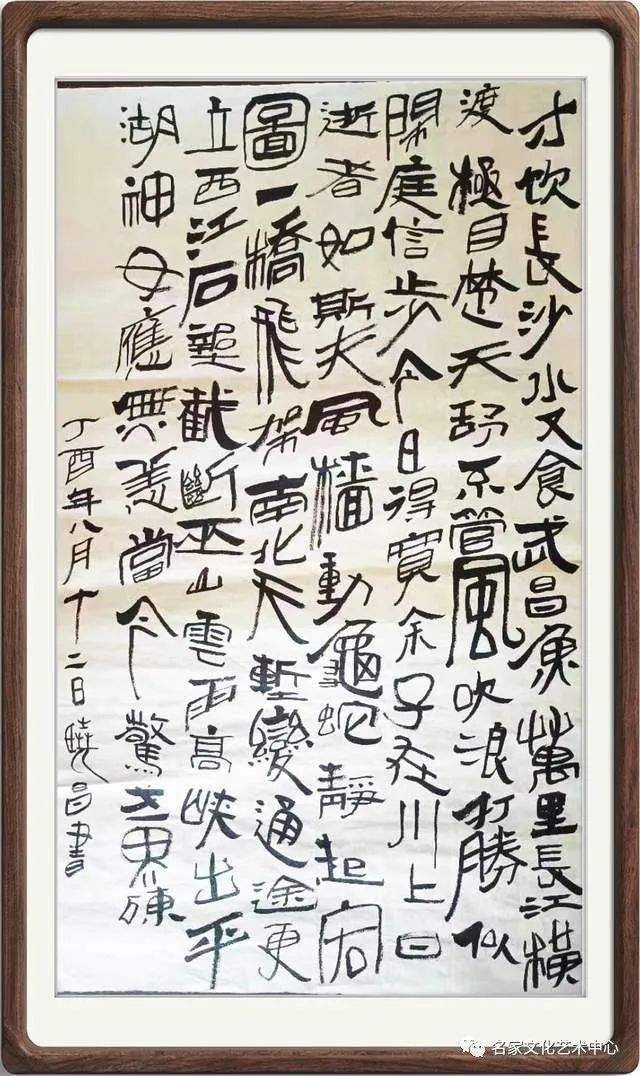 才飲長沙水又食武昌魚萬里長江橫
渡極目楚天舒不管風吹浪打勝似
閑庭信步今日得寬余子在川上曰
逝者如斯夫風檣動龜蛇靜起宏
圖一橋飛架南北天塹變通途更
立西江石壁截斷巫山雲雨高峽出平
湖神女應無恙當今驚世界殊
丁酉年八月十二日曉昌書
名家文化艺术中心